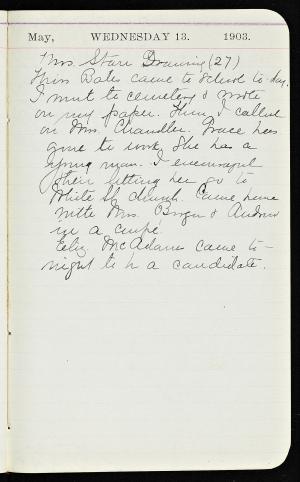 May, WEDNESDAY 13. 1903.
Mrs. Starr Downing (27)
Miss Bates came to school to-day.
I went to cemetery & wrote
on my paper. Then I called
on Mrs. Chandler. Grace has
gone to work. She has a
young man. I encouraged
their letting her go to
White St. church. Came home
with Mrs. & Andrew
in a coupé.
Eliz. McAdams came to-
night to be a candidate.